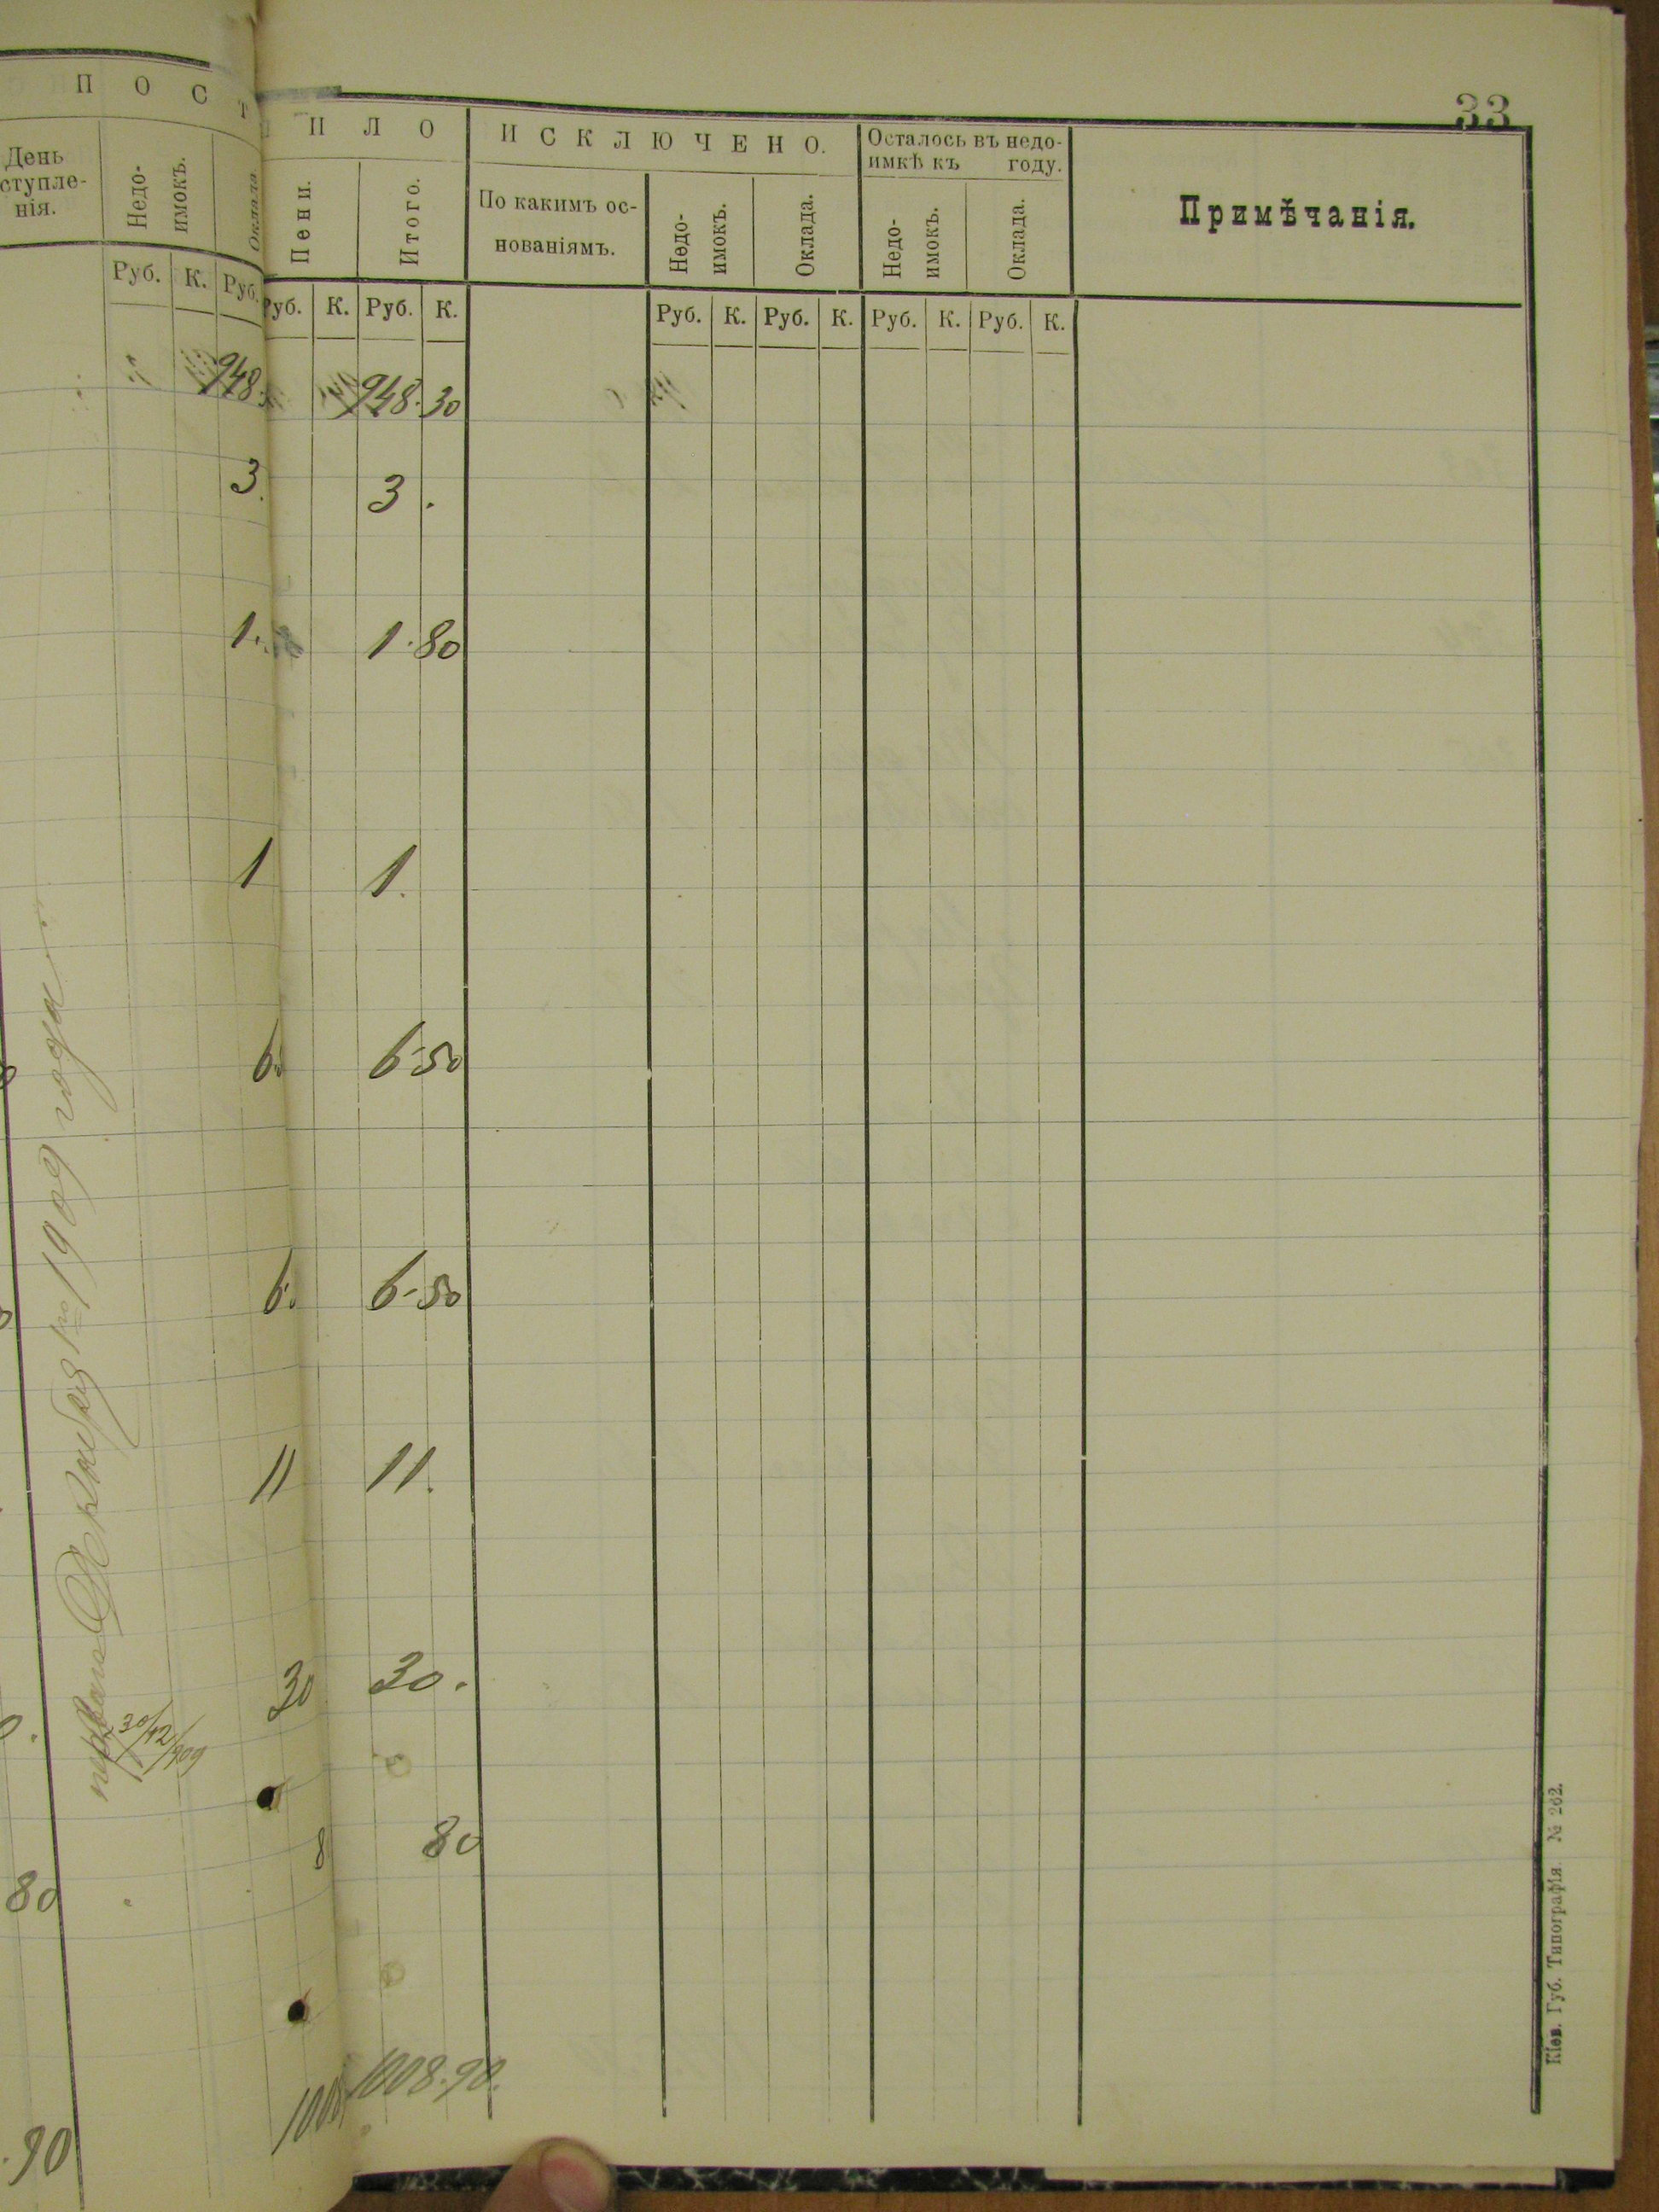 33
П О С Т
И Л О
И С К Л Ю Ч Е Н О.
Осталось въ недо-
имкѣ къ году.
Примѣчанія.
День
ступле-
нія.
Недо-
имокъ.
Оклада.
Пени.
Итого.
По какимъ ос-
нованіямъ.
Недо-
имокъ.
Оклада.
Недо-
имокъ.
Оклада.
Руб. К. Руб.
Руб. К. Руб. К.
Руб. К. Руб. К. Руб. К. Руб. К.
948. 948. 30
3. 3.
1. 1. 80
1 1.
6. 6-50
6. 6-50
11 11.
30 30.
8 80
80
1008.90.
.90
Октября 1го 1909 года
30/12/909
Кіев. Губ. Типографія. № 262.